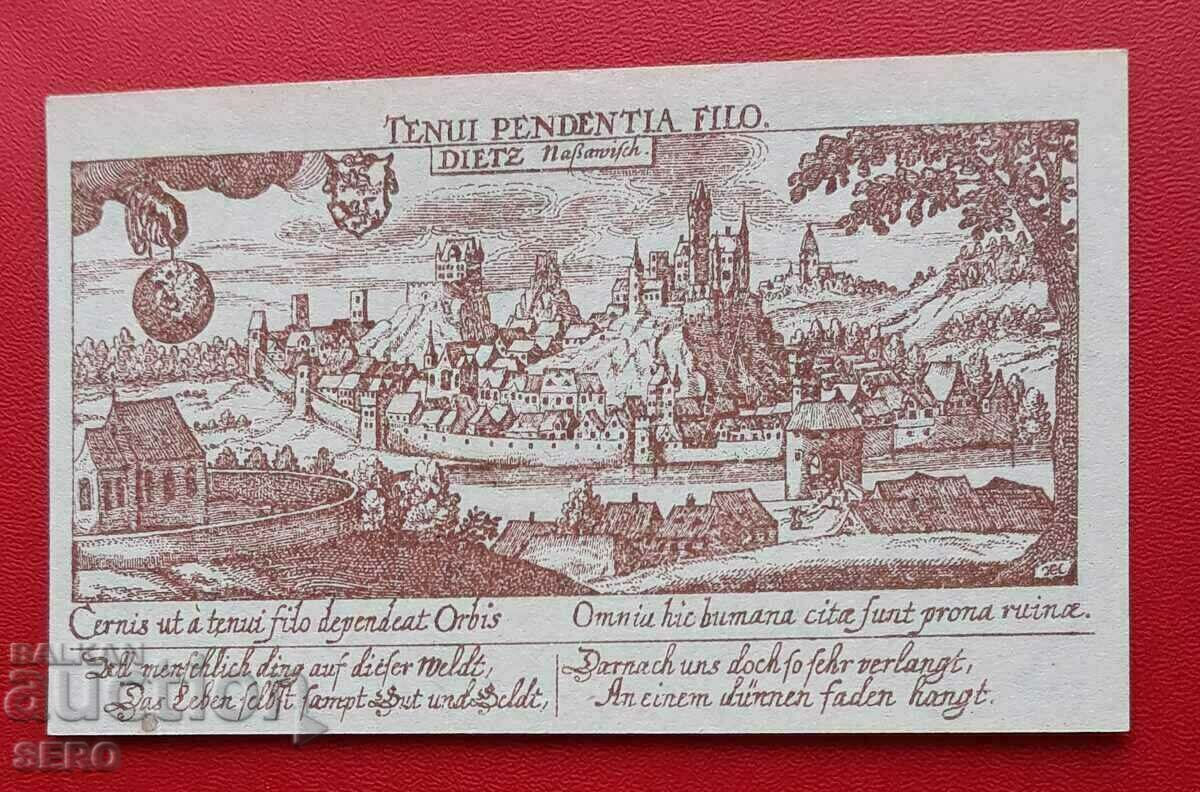 TENUI PENDENTIA FILO.
DIETZ Naßawisch.
Cernis ut à tenui filo dependeat Orbis
Omnia hic humana citæ sunt prona ruinæ.
All menschlich ding auf dieser Weldt,
Das Leben selbst sampt Gut und Geldt,
Darnach uns doch so sehr verlangt,
An einem dünnen faden hangt.
BALKAN
auction
SERO